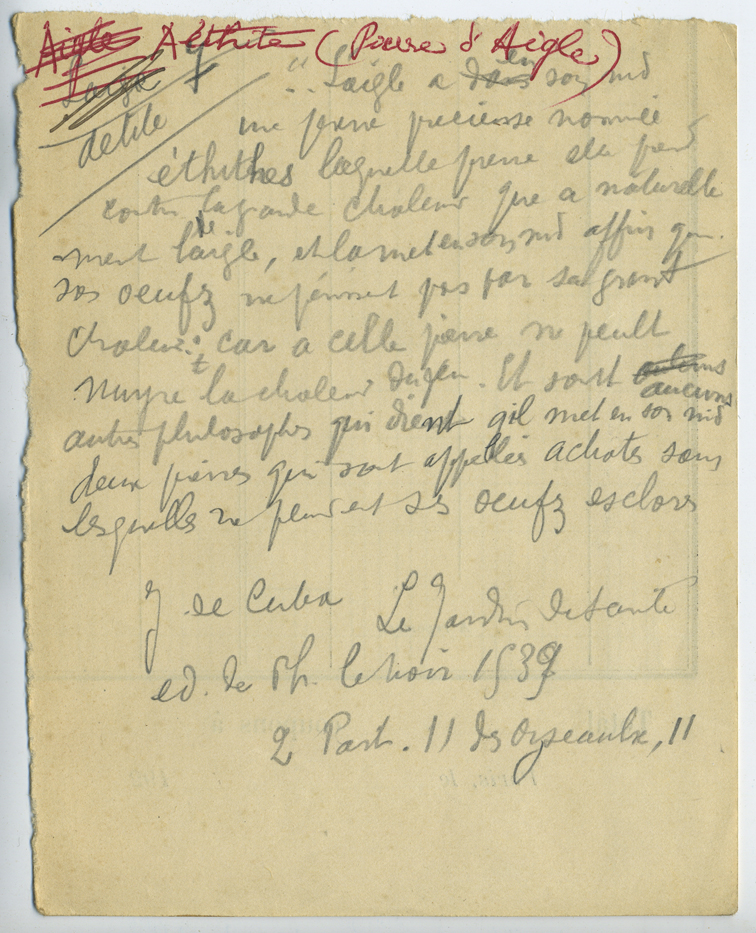 Aigle Aéthite (Pierre d'Aigle)
"L'aigle a dans en son nid
détite
une pierre precieuse nommée
éthithes laquelle pierre elle prend
contre la grande chaleur que a naturelle
ment l'aigle, et la met en son nid affin que
ses oeufz ne périssent pas par sa grant
chaleur : car a celle pierre ne peult
nuyre la chaleur du feu. Et sont aucuns
autres philosophes qui dient qil met en son nid
deux pierres qui sont appellées achates sans
lesquelles ne peuvent ses oeufz esclores
J de Cuba Le Jardin de santé
ed. de Ph. le noir 1539
2 Part. 11 des oyseaulx, 11